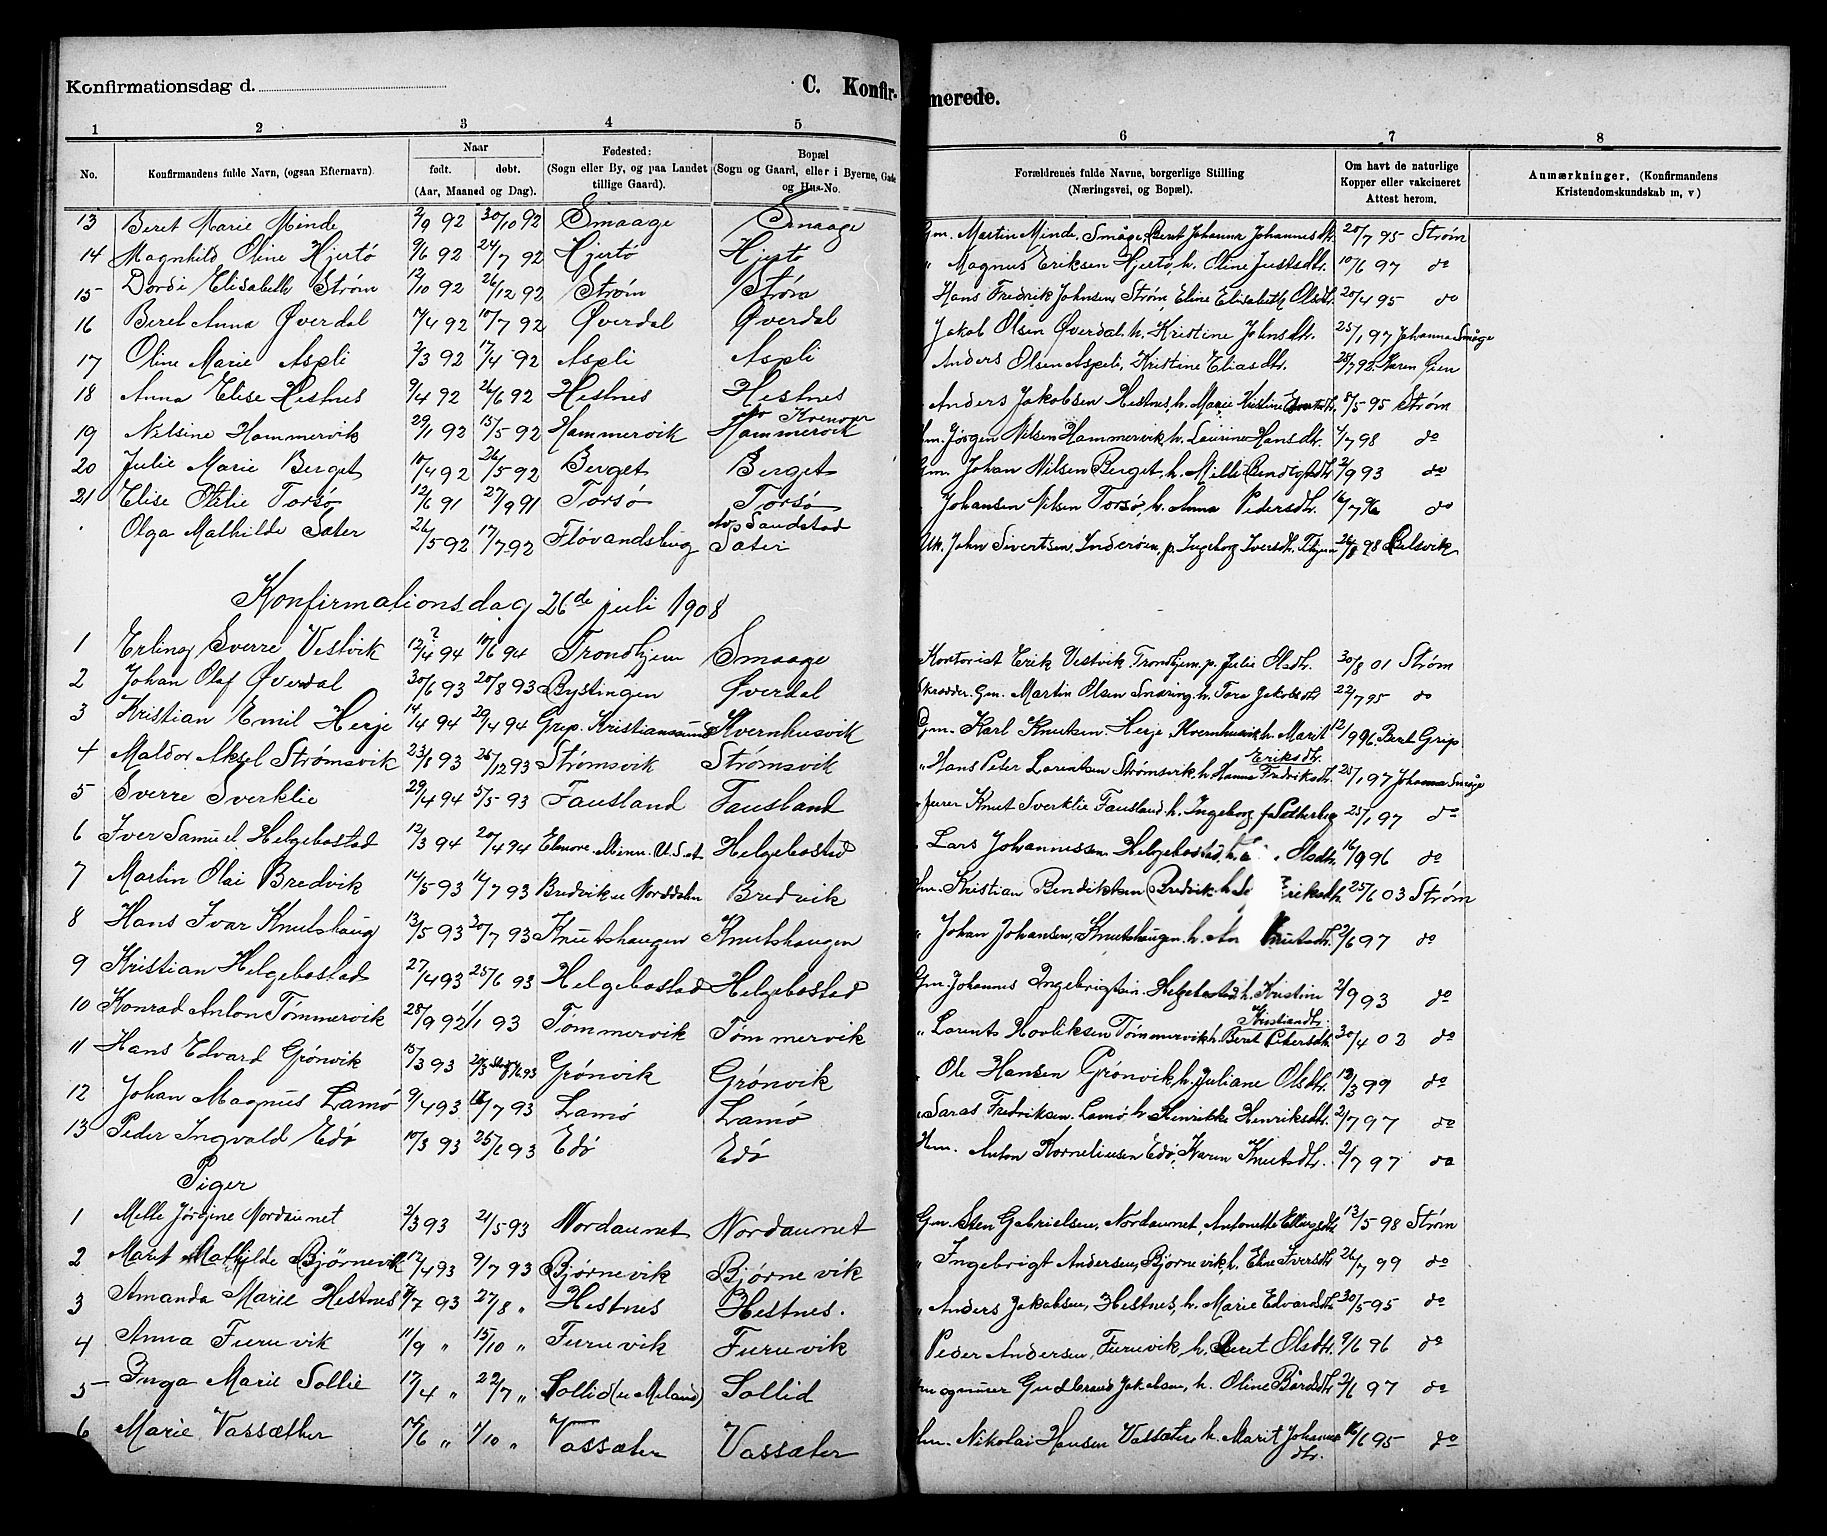 Konfirmationsdag d. C. Konfir-merede.
1 2 3 4 5 6 7 8
No. Konfirmandens fulde Navn, (ogsaa Efternavn). Naar født. døbt. (Aar, Maaned og Dag). Fødested: (Sogn eller By, og paa Landet tillige Gaard). Bopæl (Sogn og Gaard, eller i Byerne, Gade og Hus-No. Forældrenes fulde Navne, borgerlige Stilling (Næringsvei, og Bopæl). Om havt de naturlige Kopper eller vakcineret Attest herom. Anmærkninger. (Konfirmandens Kristendomskundskab m, v)
13 Beret Marie Minde 2/9 92 30/10 92 Smaage Smaage Gm. Martin Minde, Småge, Beret Johanna Johannesdtr. 20/7 95 Strøm
14 Magnhild Oline Hjertø 9/6 92 24/7 92 Hjertø Hjertø " Magnus Eriksen Hjertø, h. Oline Justsdtr. 10/6 97 do
15 Dordi Elisabeth Strøm 12/10 92 26/12 92 Strøm Strøm Hans Fredrik Johnsen, Strøm, Eline Elisabeth Olsdtr. 20/4 95 do
16 Beret Anna Øverdal 7/4 92 10/7 92 Øverdal Øverdal Jakob Olsen Øverdal h. Kristine Johnsdtr. 25/1 97 Johanna Småge
17 Oline Marie Aspli 2/3 92 17/4 92 Aspli Aspli Anders Olsen Aspli, Kristine Eliasdtr. 28/7 92 Karen Gien
18 Anna Elise Hestnes 9/4 92 26/6 92 Hestnes Hestnes Anders Jakobsen Hestnes, h. Marie Kristine 8/5 95 Strøm
19 Nilsine Hammervik 29/1 92 15/5 92 Hammervik Hammervik Jørgen Nilsen Hammervik h. Laurine Hansdtr. 4/7 98 do
20 Julie Marie Berget 10/4 92 26/5 92 Berget Berget Gm. Johan Nilsen Berget, h. Milli Bendigtsdtr. 2/9 93 do
21 Elise Otilie Torsø 12/6 91 27/9 91 Torsø Torsø Johansen Nilsen Torsø, h. Anna Pedersdtr. 16/7 96 do
Olga Mathilde Sæter 26/5 92 17/7 92 Fløvandsbug Sæter Sandstad John Sivertsen, Inderøen, p. Ingeborg Iversdtr. 26/8 98
Konfirmationsdag 26de juli 1908
1 Erling Sverre Vestvik 12/4 94 ? 10/6 94 Trondhjem Smaage Kontorist Erik Vestvik Trondhjem, p. Julie Olsdtr. 30/8 01 Strøm
2 Johan Olaf Øverdal 30/6 93 20/8 93 Bystingen Øverdal Skrædder. Gm. Martin Olsen h. Tora Jakobsdtr 22/7 95 do
3 Kristian Emil Herje 14/4 94 29/4 94 Grip. Kristianssund Kvernhusvik Gm. Karl Knutsen Herje Kvernhusvik h. Marit Eriksdtr. 12/9 96 Beret Grip
4 Maldor Aksel Strømsvik 23/8 93 26/12 93 Strømsvik Strømsvik " Hans Peter Larentsen Strømsvik, h. Hanna Fredriksdtr. 25/1 97 Johanna Småge
5 Sverre Sverklie 29/4 94 5/5 93 Fausland Fausland Knut Sverklie Fausland h. Ingeborg 25/1 97 do
6 Iver Samuel Helgebostad 12/3 94 20/4 94 Elenore. Minn. U.S.A Helgebostad Lars Johannessen Helgebostad, h. Olsdtr. 16/9 96 do
7 Martin Olai Bredvik 12/5 93 16/7 93 Bredvik Norddalen Bredvik Kristian Bendiktsen Bredvik h. Eriksdtr. 25/6 03 Strøm
8 Hans Ivar Knutshaug 13/5 93 30/7 93 Knutshaugen Knutshaugen " Johan Johansen, Knutshaugen h. Knutsdtr. 2/6 97 do
9 Kristian Helgebostad 27/4 93 25/6 93 Helgebostad Helgebostad Gm. Johannes Ingebrigtsen Helgebostad h. Kristine Kristiandtr. 2/9 93 do
10 Konrad Anton Tømmervik 28/9 92 1/1 93 Tømmervik Tømmervik " Larents Hovliksen Tømmervik h. Beret Petersdtr. 30/4 02 do
11 Hans Edvard Grønvik 15/3 93 Grønvik Grønvik Ole Hansen Grønvik, h. Juliane Olsdtr. 12/3 99 do
12 Johan Magnus Lamø 9/4 93 16/7 93 Lamø Lamø Saras Fredriksen. Lamø, h. Henrikke Henriksdtr. 2/7 97 do
13 Peder Ingvald Edø 10/3 93 25/6 93 Edø Edø Hm. Anton Korneliussen Edø, Karen Knutsdtr. 2/7 97 do
Piger
1 Melle Jørgine Nordaunet 2/3 93 21/5 93 Nordaunet Nordaunet Gm. Sten Gabrielsen, Nordaunet, Antonette Ellingsdtr. 13/5 98 Strøm
2 Marit Mathilde Bjørnevik 12/4 93 9/7 93 Bjørnevik Bjørnevik " Ingebrigt Andersen, Bjørnevik, h. Eline Iversdtr. 26/7 99 do
3 Amanda Marie Hestnes 7/7 93 27/8 " Hestnes Hestnes. " Anders Jakobsen, Hestnes, h. Marie Edvardsdtr. 30/5 95 do
4 Anna Furuvik 11/9 " 15/10 " Furuvik Furuvik Peder Andersen, Furuvik h. Beret Olsdtr. 9/6 96 do
5 Inga Marie Sollie 17/4 " 22/7 " Sollid (u Meland) Sollid Gudbrand Jakobsen, h. Oline Bårdsdtr. 2/6 97 do
6 Marie Vassæther 17/6 " 1/10 " Vassæter Vassæter Nikolai Hansen Vassæter, h. Marit Johannesdtr. 16/6 95 do